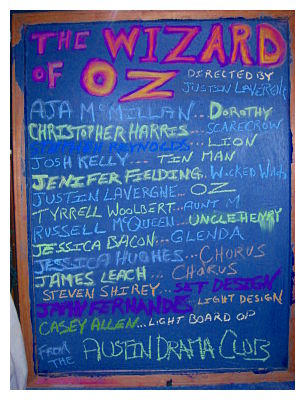 THE WIZARD
OF OZ
DIRECTED BY
JUSTIN LAVERGNE
AJA McMILLAN... DOROTHY
CHRISTOPHER HARRIS... SCARECROW
STEPHEN REYNOLDS... LION
JOSH KELLY... TIN MAN
JENIFER FIELDING.. Wicked Witch
JUSTIN LAVERGNE... OZ
TYRRELL WOOLBERT...AUNT M
RUSSELL McQUEEN...UNCLE HENRY
JESSICA BACON...GLENDA
JESSICA HUGHES...CHORUS
JAMES LEACH... CHORUS
STEVEN SHIREY...SET DESIGN
FERNANDES LIGHT DESIGN
CASEY ALLEN...LIGHT BOARD OP
FROM THE AUSTIN DRAMA CLUB